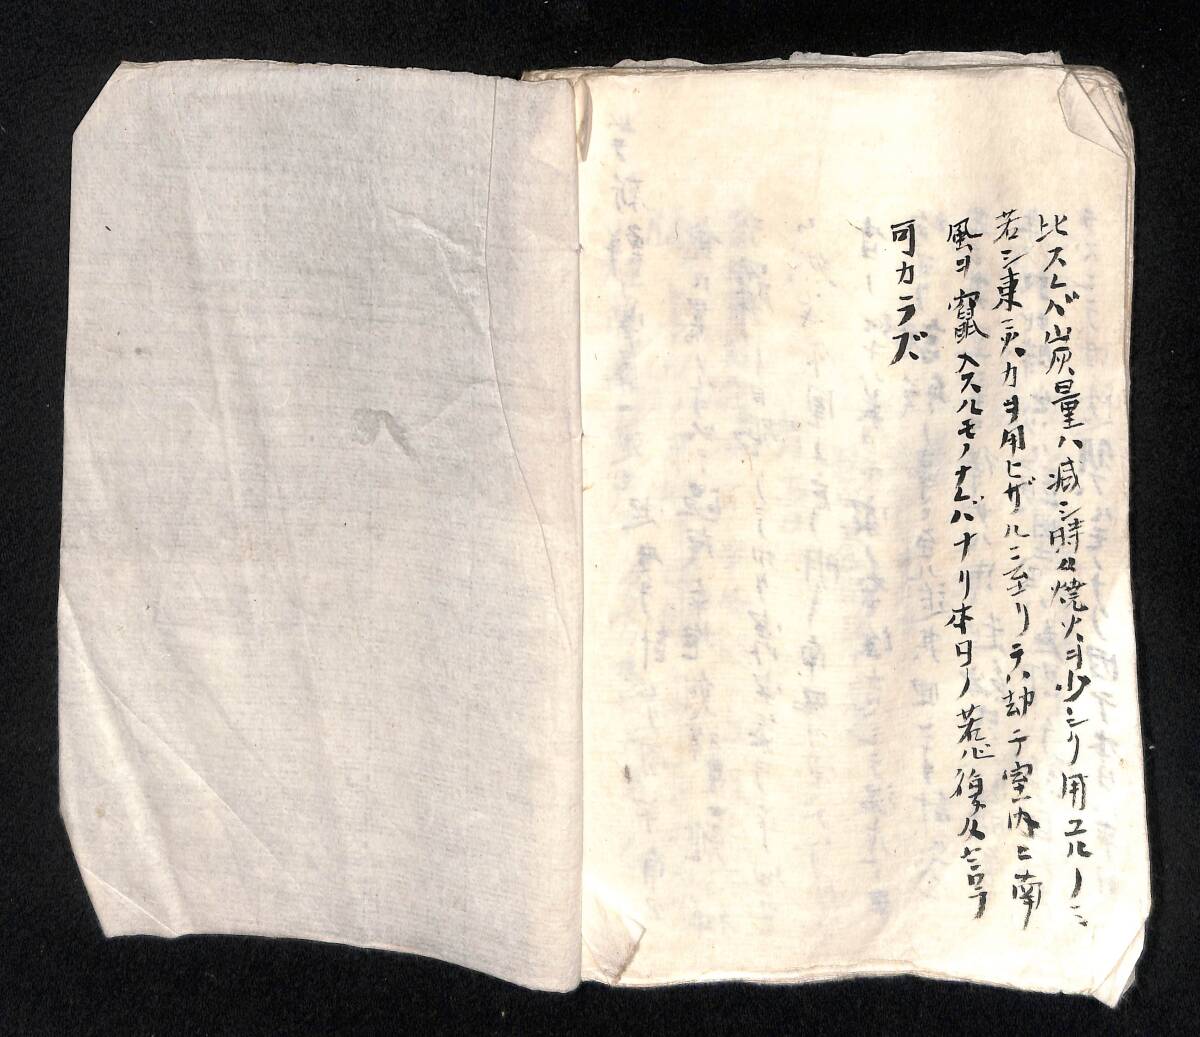 比スレバ炭量ハ減シ時々焼火ヲ少シク用ユルノミ
若シ東 火力ヲ用ヒザルニ至リテハ却テ室内ニ南
風ヲ竄入スルモノナレバナリ本日ノ 復タ言フ
可カラズ